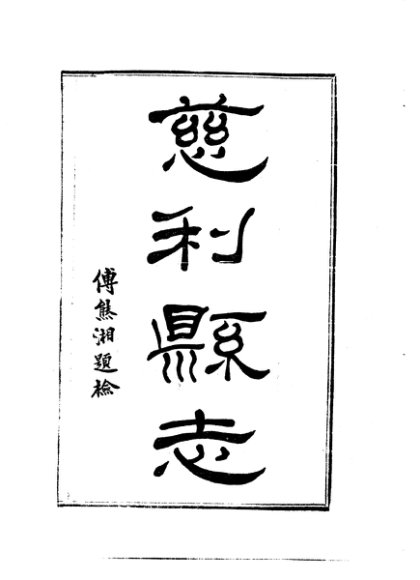 慈利縣志
傅熊湘題檢